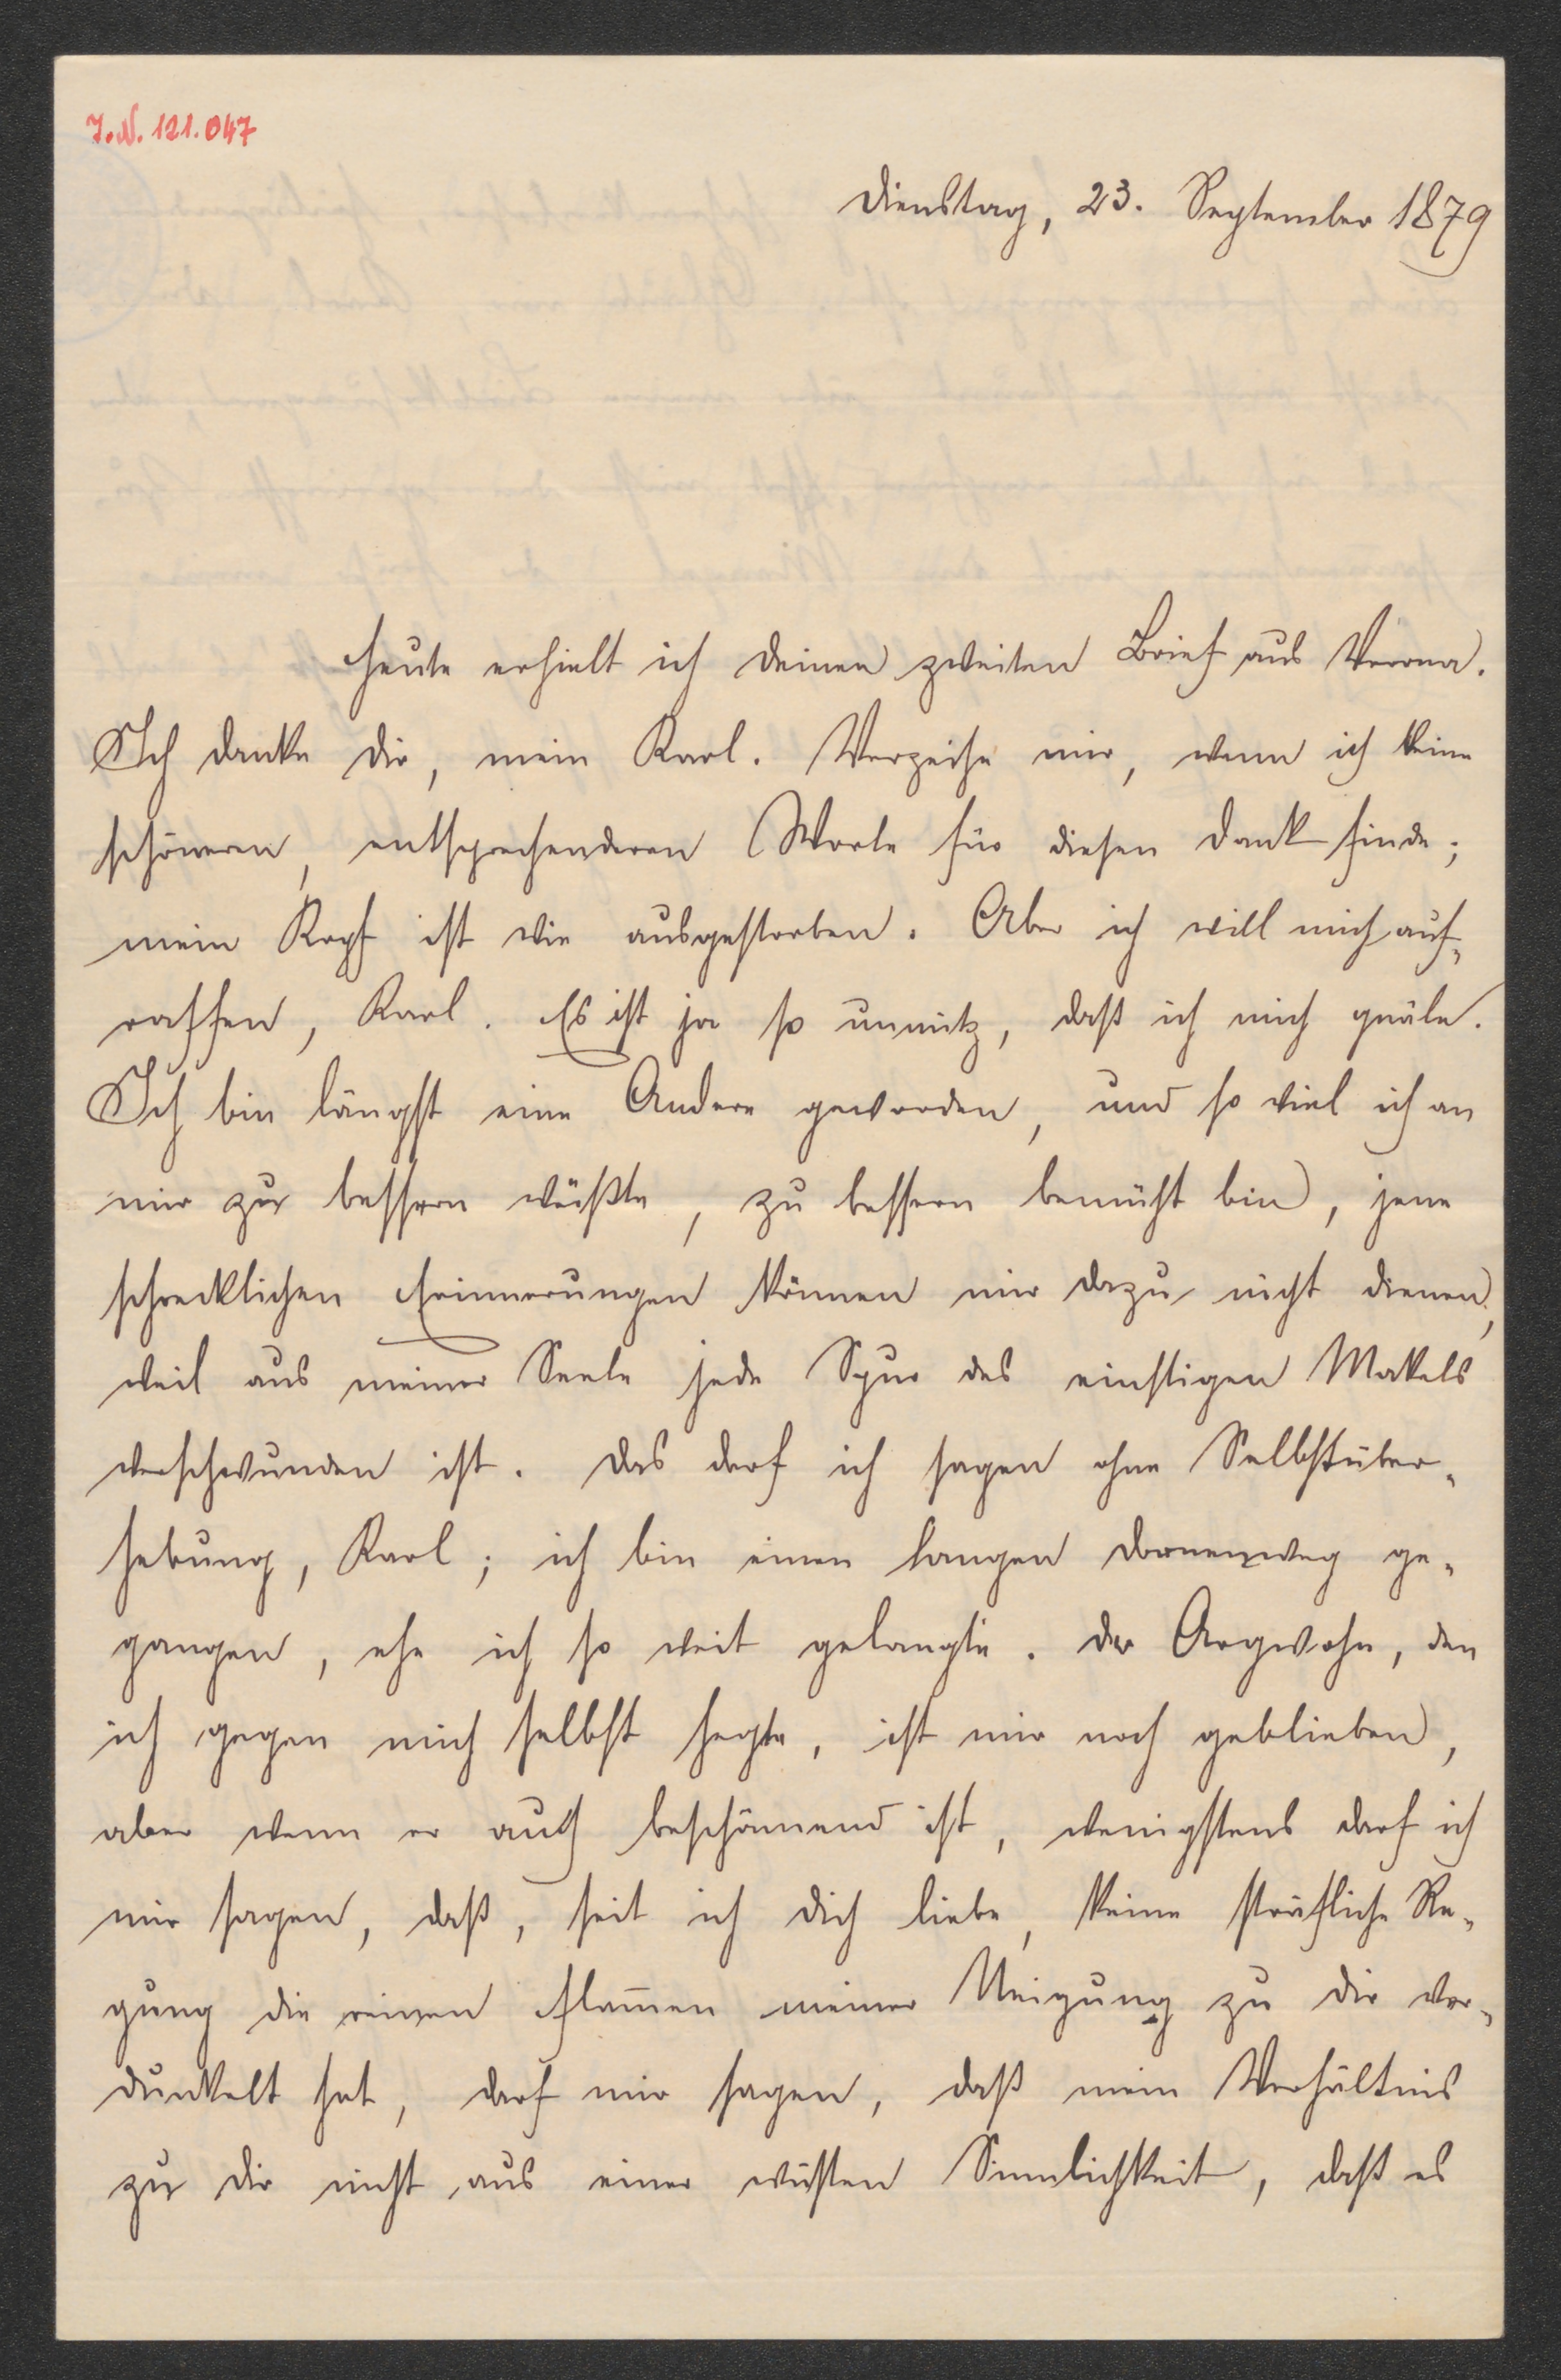 J.N. 121.047
Dienstag, 23. September 1879
Heute erhielt ich deinen zweiten Brief aus Verona.
Ich danke dir, mein Karl. Verzeihe mir, wenn ich keine
schöneren, entsprechenderen Worte für diesen Dank finde;
mein Kopf ist wie ausgestorben. Aber ich will mich auf-
raffen, Karl. Es ist ja so unnütz, daß ich mich quäle.
Ich bin längst eine Andere geworden, und so viel ich an
mir zu bessern wüßte, zu bessern bemüht bin, jene
schrecklichen Erinnerungen können mir dazu nicht dienen,
weil aus meiner Seele jede Spur des einstigen Makels
verschwunden ist. Das darf ich sagen ohne Selbstüber-
hebung, Karl; ich bin einen langen Dornenweg ge-
gangen, ehe ich so weit gelangte. Der Argwohn, den
ich gegen mich selbst hegte, ist mir noch geblieben,
aber wenn er auch beschämend ist, wenigstens darf ich
mir sagen, daß, seit ich dich liebe, keine sträfliche Re-
gung die reinen Flam̄en meiner Neigung zu dir ver-
dunkelt hat, darf mir sagen, daß mein Verhältnis
zu dir nicht aus einer wüsten Sinnlichkeit, daß es